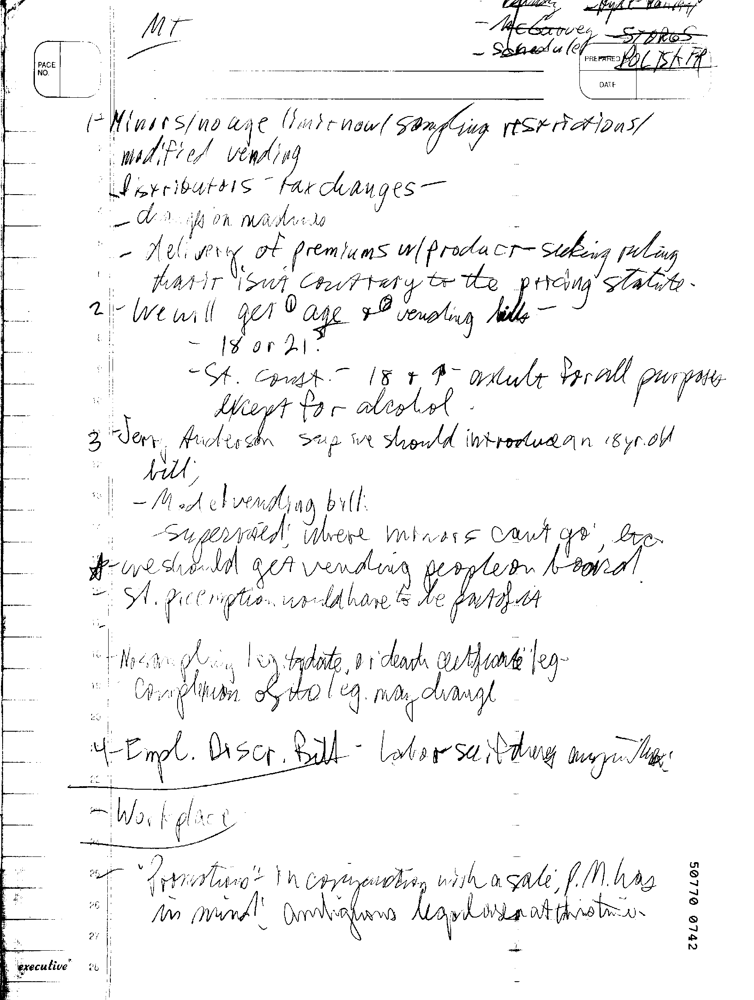 MT
- McGarvey STORGS
- Schedule
PAGE
NO.
PREPARED
POLISHER
DATE
1- Minors/no age limit now/ sampling restrictions/
modified vending
Distributors - tax changes -
- on machines
- delivery of premiums w/product - seeking ruling
that it isn't contrary to the pricing statute.
2 - We will get ① age + ② vending bills -
- 18 or 21?
- St. const. - 18 + ↑ - adult for all purposes
except for alcohol.
3 - Jerry Anderson says we should introduce an 18 yr. old
bill;
- Model vending bill:
- supervised, where minors can't go, etc
- we should get vending people on board.
- St. preemption would have to be part of it
- No sampling leg. to date, or death certificate leg-
complexion of leg. may change
4 - Empl. Discr. Bill - Labor
- Workplace
- "Promotions" in conjunction with a sale, P.M. has
in mind; ambiguous legal area at this time.
25
26
27
28
executive
50770 0742